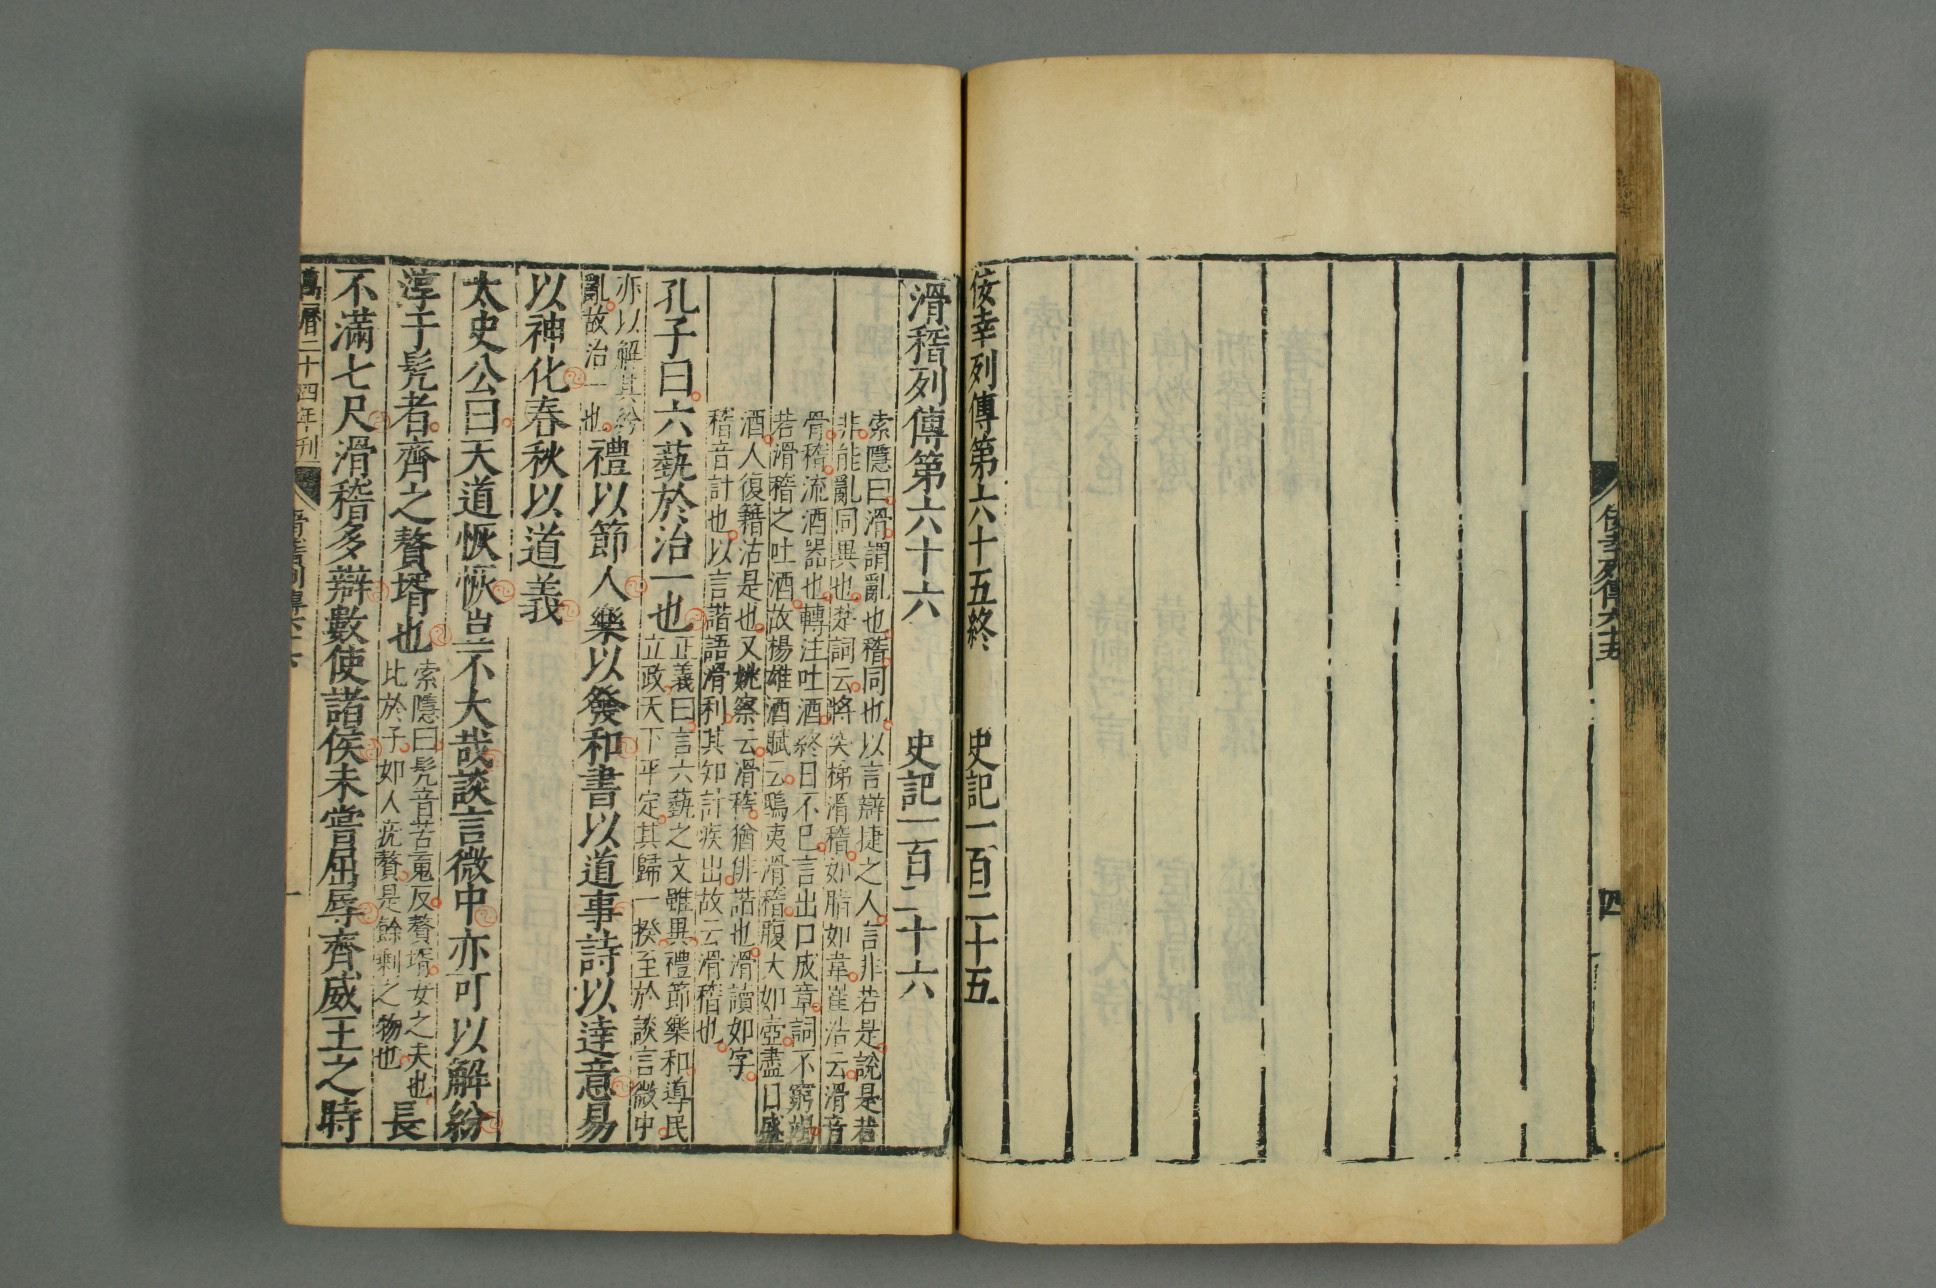 佞幸列傳第六十五終　史記一百二十五
佞幸列傳六十五
四
滑稽列傳第六十六　史記一百二十六
索隱曰滑謂亂也稽同也以言辯捷之人言非若是說是若
非能亂同異也楚詞云將突梯滑稽如脂如韋崔浩云滑音
骨稽流酒器也轉注吐酒終日不已言出口成章詞不窮竭
若滑稽之吐酒故楊雄酒賦云鴟夷滑稽腹大如壺盡日盛
酒人復籍沽是也又姚察云滑稽猶俳諧也滑讀如字
稽音計也以言諧語滑利其知計疾出故云滑稽也
孔子曰六藝於治一也
正義曰言六藝之文雖異禮節樂和導民
立政天下平定其歸一揆至於談言微中
亦以解其紛
亂故治一也
禮以節人樂以發和書以道事詩以達意易
以神化春秋以道義
太史公曰天道恢恢豈不大哉談言微中亦可以解紛
淳于髡者齊之贅壻也
索隱曰髡音苦䰟反贅壻女之夫也
比於子如人疣贅是餘剩之物也
長
不滿七尺滑稽多辯數使諸侯未嘗屈辱齊威王之時
萬曆二十四年刊
一